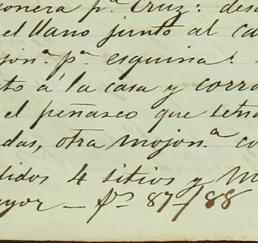 ionera p.ª Cruz: desd
el llano junto al ca
jon.ª p.ª esquina:
to á la casa y corra
el peñasco que seña
das, otra mojon.ª co
didos 4 sitios y m
ayor — f.s 87/88